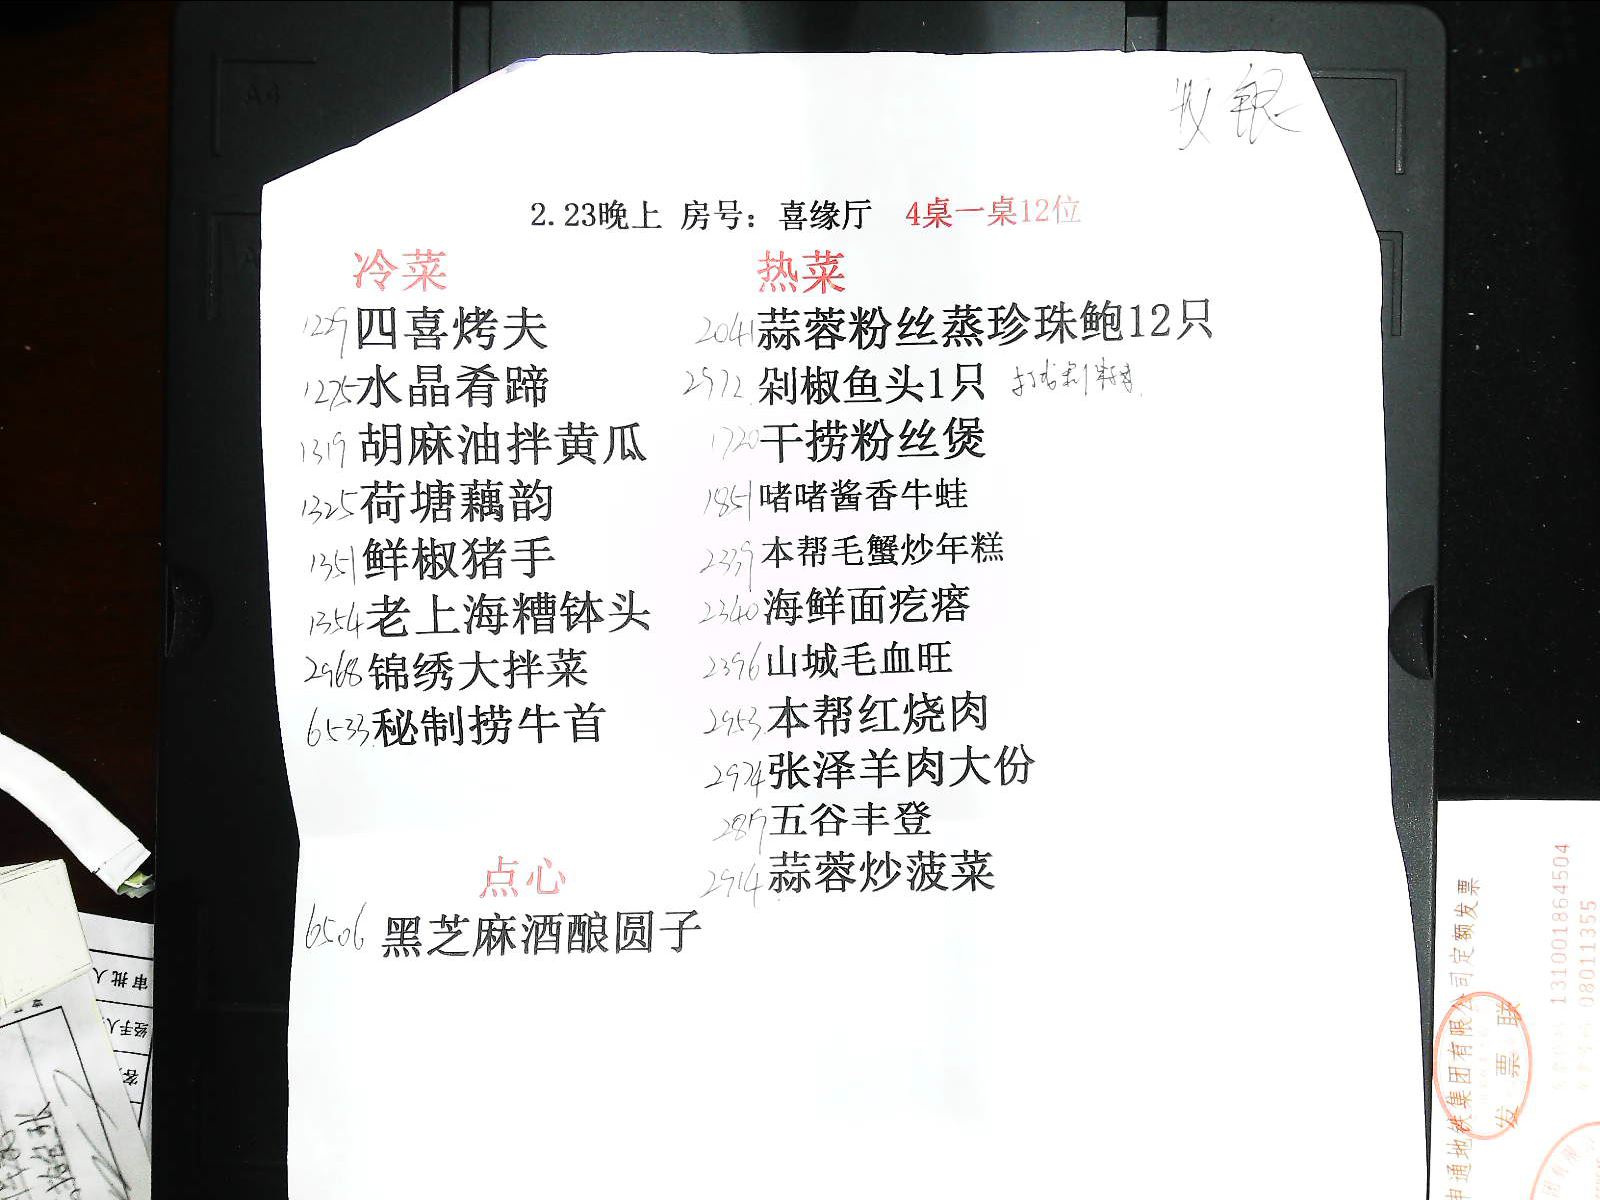 收银
2.23晚上 房号：喜缘厅 4桌一桌12位
冷菜
1229 四喜烤夫
1275 水晶肴蹄
1319 胡麻油拌黄瓜
1325 荷塘藕韵
1351 鲜椒猪手
1354 老上海糟钵头
2968 锦绣大拌菜
6533 秘制捞牛首
点心
6506 黑芝麻酒酿圆子
热菜
2041 蒜蓉粉丝蒸珍珠鲍12只
2972 剁椒鱼头1只
1720 干捞粉丝煲
1851 啫啫酱香牛蛙
2339 本帮毛蟹炒年糕
2340 海鲜面疙瘩
2396 山城毛血旺
2953 本帮红烧肉
2974 张泽羊肉大份
五谷丰登
2914 蒜蓉炒菠菜
审批人
经手人
申通地铁集团有限公司定额发票
发票联
131001864504
08011355